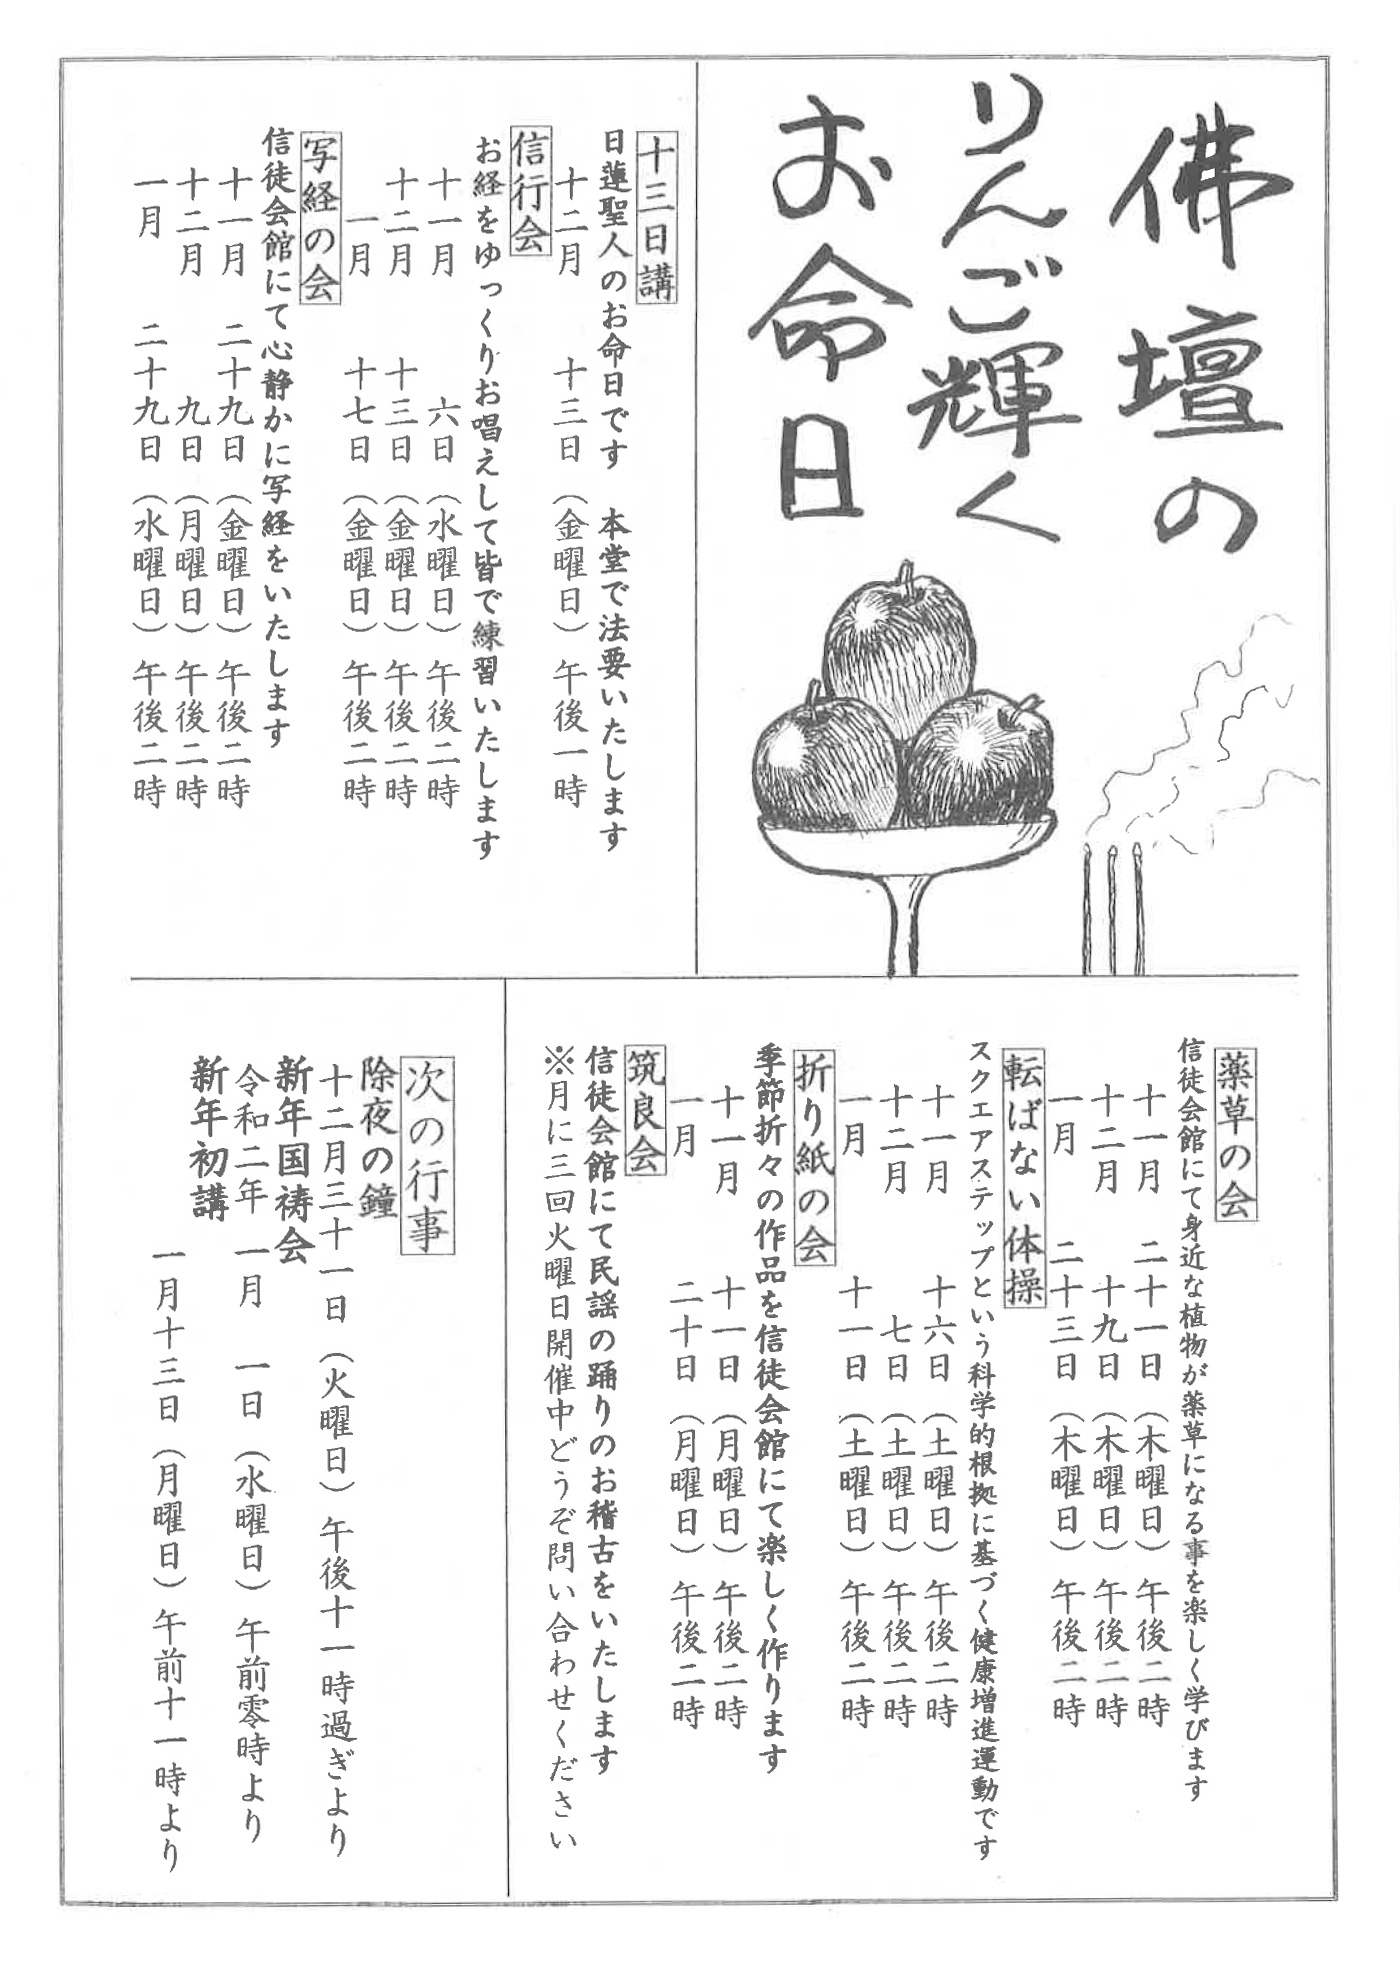 佛壇の
りんご輝く
お命日
十三日講
日蓮聖人のお命日です　本堂で法要いたします
十二月　十三日（金曜日）午後一時
信行会
お経をゆっくりお唱えして皆で練習いたします
十一月　六日（水曜日）午後二時
十二月　十三日（金曜日）午後二時
一月　十七日（金曜日）午後二時
写経の会
信徒会館にて心静かに写経をいたします
十一月　二十九日（金曜日）午後二時
十二月　九日（月曜日）午後二時
一月　二十九日（水曜日）午後二時
薬草の会
信徒会館にて身近な植物が薬草になる事を楽しく学びます
十一月　二十一日（木曜日）午後二時
十二月　十九日（木曜日）午後二時
一月　二十三日（木曜日）午後二時
転ばない体操
スクエアステップという科学的根拠に基づく健康増進運動です
十一月　十六日（土曜日）午後二時
十二月　七日（土曜日）午後二時
一月　十一日（土曜日）午後二時
折り紙の会
季節折々の作品を信徒会館にて楽しく作ります
十一月　十一日（月曜日）午後二時
一月　二十日（月曜日）午後二時
筑良会
信徒会館にて民謡の踊りのお稽古をいたします
※月に三回火曜日開催中どうぞ問い合わせください
次の行事
除夜の鐘
十二月三十一日（火曜日）午後十一時過ぎより
新年国祷会
令和二年　一月　一日（水曜日）午前零時より
新年初講
一月十三日（月曜日）午前十一時より